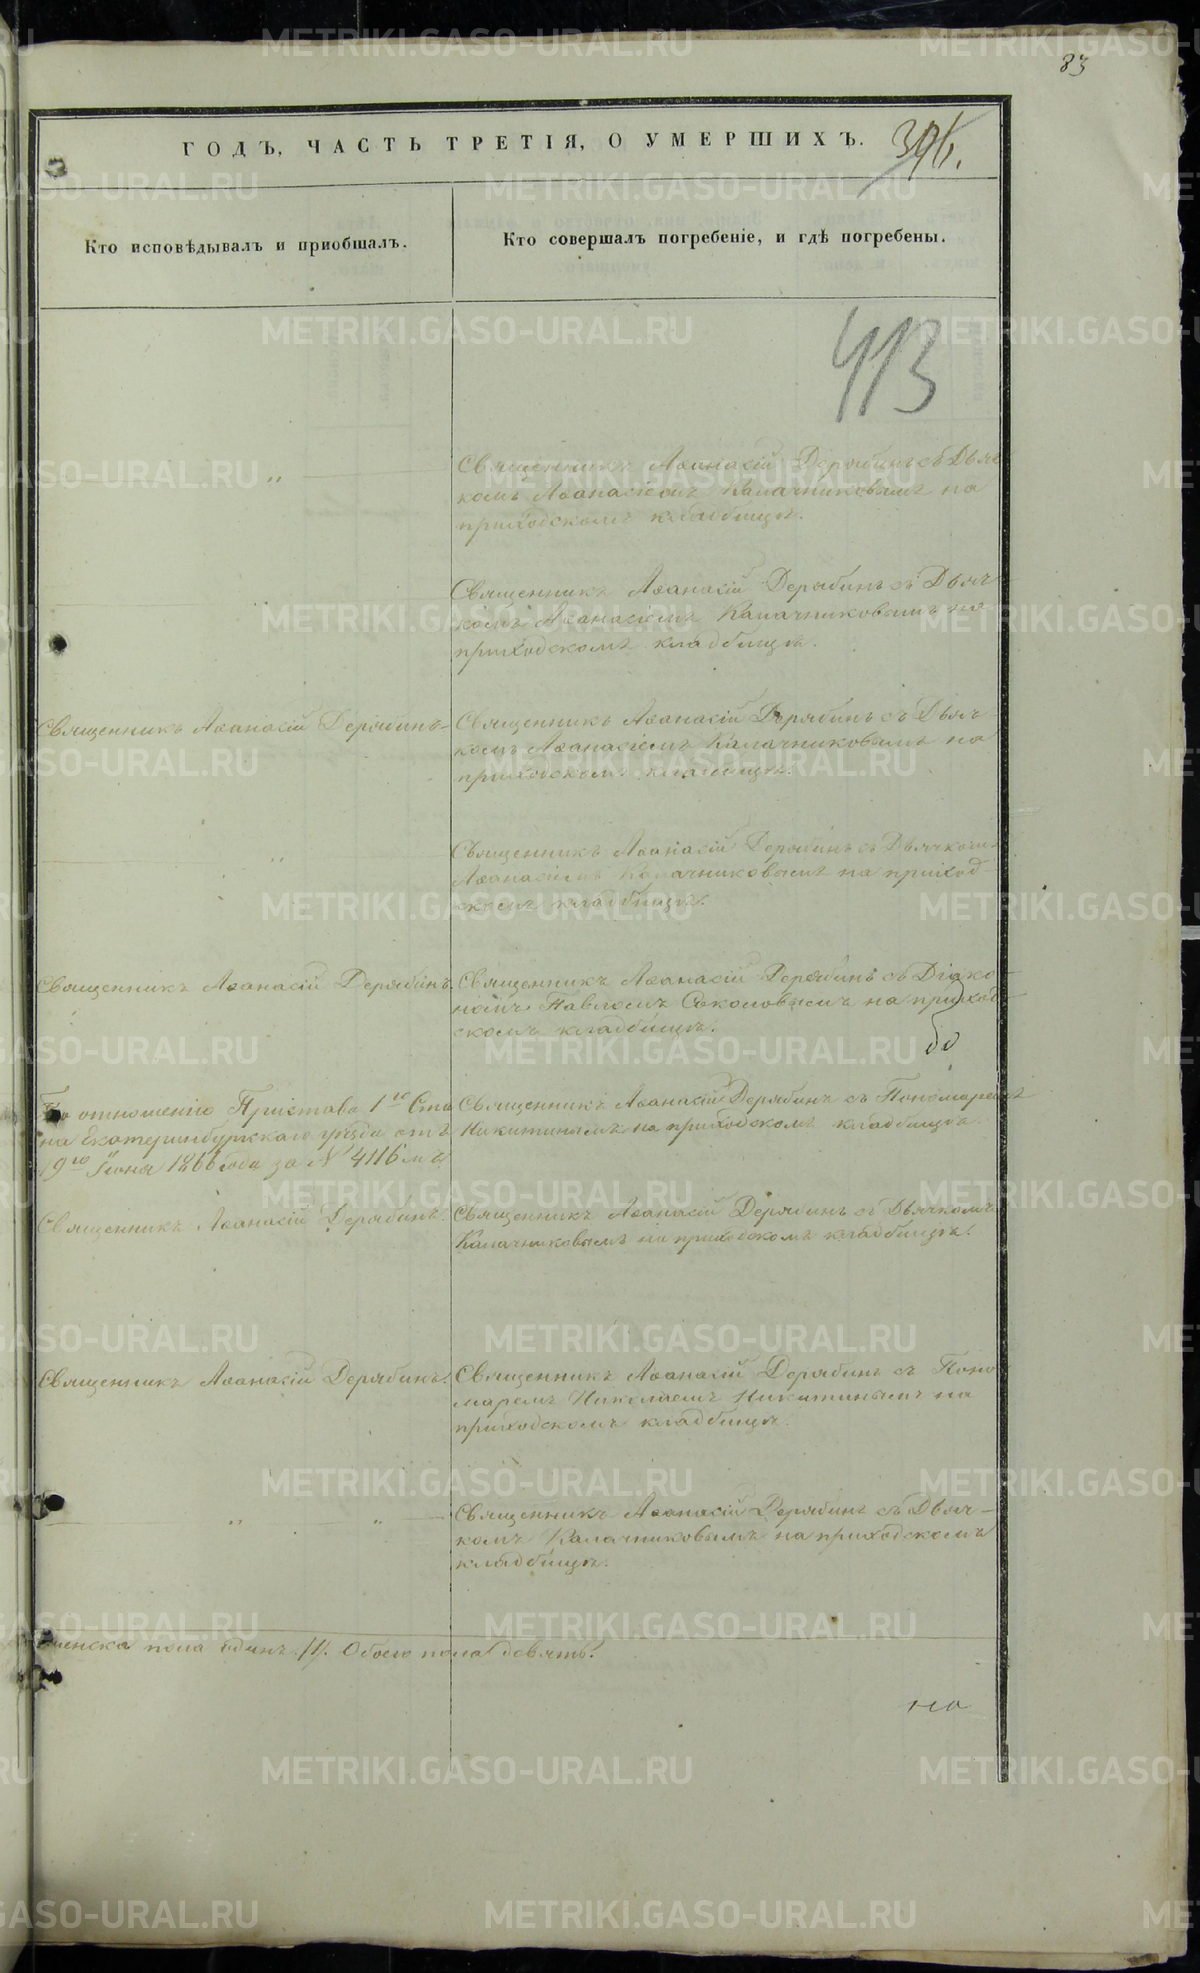 83
ГОДЪ, ЧАСТЬ ТРЕТІЯ, О УМЕРШИХЪ.
396.
Кто исповѣдывалъ и приобщалъ.
Кто совершалъ погребеніе, и гдѣ погребены.
413
„
Священникъ Аѳанасій Дерябинъ съ Дьяч
комъ Аѳанасіемъ Калачниковымъ на
приходскомъ кладбищѣ.
Священникъ Аѳанасій Дерябинъ съ Дьяч
комъ Аѳанасіемъ Калачниковымъ на
приходскомъ кладбищѣ.
Священникъ Аѳанасій Дерябинъ
Священникъ Аѳанасій Дерябинъ съ Дьяч
комъ Аѳанасіемъ Калачниковымъ на
приходскомъ кладбищѣ.
„
Священникъ Аѳанасій Дерябинъ съ Дьячкомъ
Аѳанасіемъ Калачниковымъ на приход
скомъ кладбищѣ.
Священникъ Аѳанасій Дерябинъ.
Священникъ Аѳанасій Дерябинъ съ Діако
номъ Павломъ Соколовымъ на приход
скомъ кладбищѣ.
По отношенію Пристава 1го Ста
на Екатеринбургскаго уѣзда отъ
9го Іюня 1866 года за № 4116мъ
Священникъ Аѳанасій Дерябинъ съ Пономаремъ
Никитинымъ на приходскомъ кладбищѣ.
Священникъ Аѳанасій Дерябинъ.
Священникъ Аѳанасій Дерябинъ съ Дьячкомъ
Калачниковымъ на приходскомъ кладбищѣ.
Священникъ Аѳанасій Дерябинъ.
Священникъ Аѳанасій Дерябинъ съ Поно
маремъ Николаемъ Никитинымъ на
приходскомъ кладбищѣ.
„ „
Священникъ Аѳанасій Дерябинъ съ Дьяч-
комъ Калачниковымъ на приходскомъ
кладбищѣ.
женска пола одинъ /1/. Обоего пола девять.
но
METRIKI.GASO-URAL.RU